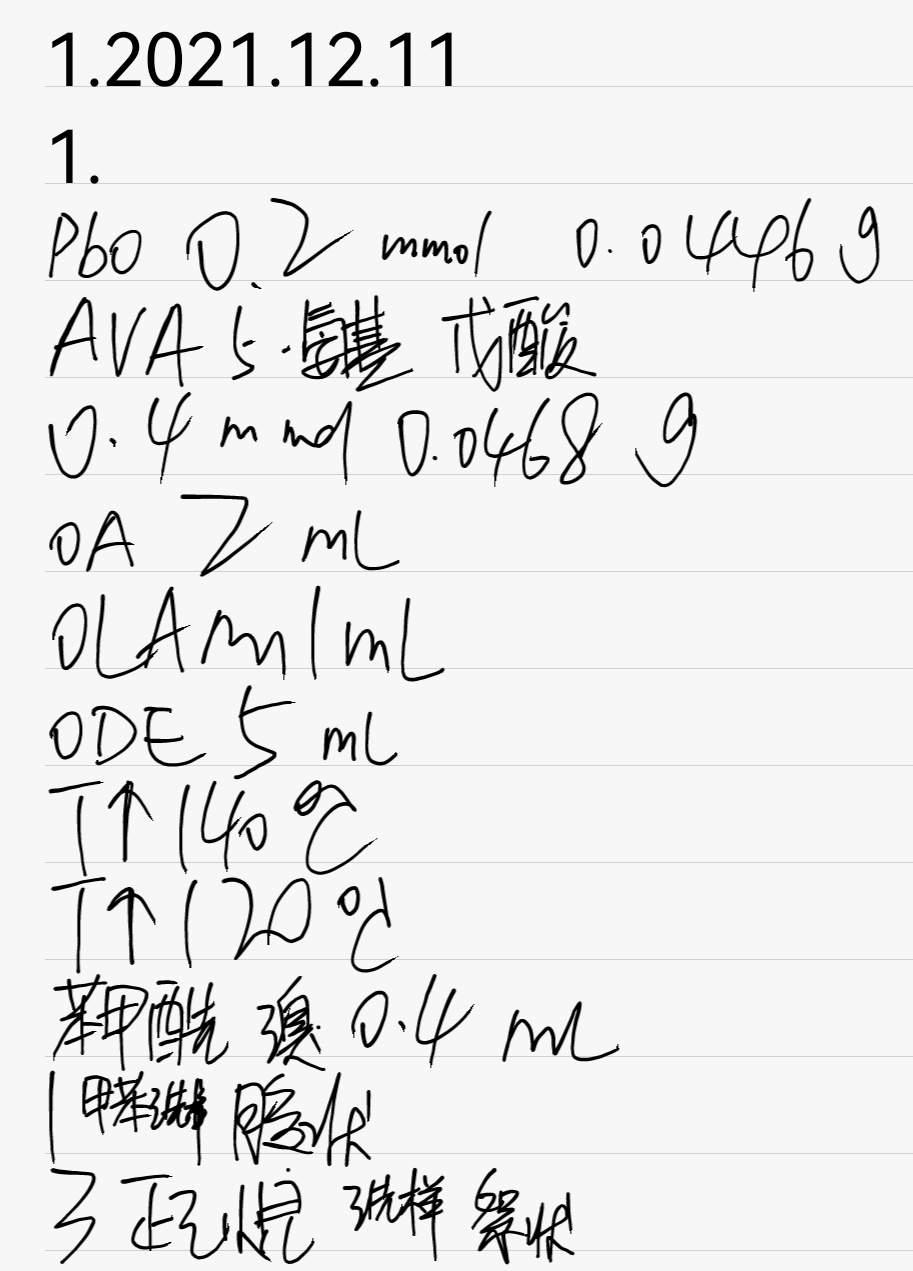 1.2021.12.11
1.
PbO 0.2 mmol 0.0446 g
AVA 5.氨基 戊酸
0.4 mmol 0.0468 g
OA 2 mL
OLAm 1 mL
ODE 5 mL
T↑ 140 ℃
T↑ 120 ℃
苯甲酰 溴 0.4 mL
1 甲苯洗 胶状
3 正己烷 洗样 絮状